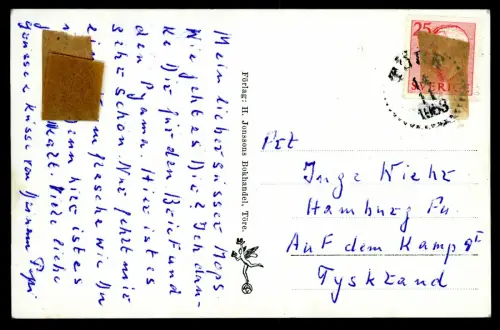 Mein lieber süsser Mops.
Wie geht es Dir? Ich dan-
ke Dir für den Brief und
den Pyama. Hier ist es
sehr schön. Nur fehlt mir
wie Du
Denn hier ist es
kalt. Viele liebe
Grüsse u Küsse von Deinem Papi
Förlag: H. Jonssons Bokhandel, Töre.
25
SVERIGE
TÖRE
14
11
1963
Frl
Inge Kiehr
Hamburg Fu.
Auf dem Kamp 9I
Tyskland